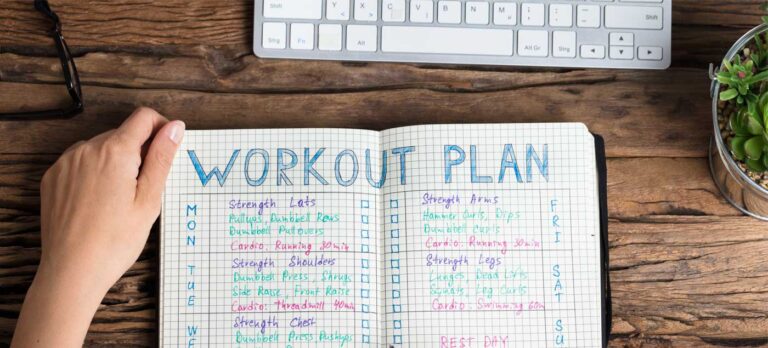 Shift Y X C V B N M Shift
Alt Alt Gr Ctrl
WORKOUT PLAN
MON
Strength Lats
Pullups, Dumbbell Rows
Dumbbell Pullovers
Cardio: Running 30min
TUE
Strength Shoulders
Dumbbell Press, Shrugs
Side Raise, Front Raise
Cardio: Threadmill 40min
WE
Strength Chest
Dumbbell Press, Pushups
FRI
Strength Arms
Hammer Curls, Dips
Dumbbell Curls
Cardio: Running 30min
SAT
Strength Legs
Lunges, Dead Lifts
Squats, Leg Curls
Cardio: Swimming 60m
SU
REST DAY